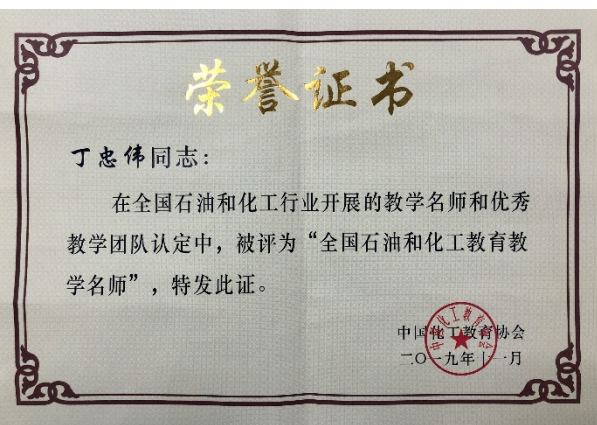 荣誉证书
丁忠伟同志:
在全国石油和化工行业开展的教学名师和优秀
教学团队认定中，被评为“全国石油和化工教育教
学名师”，特发此证。
中国化工教育协会
二〇一九年十一月